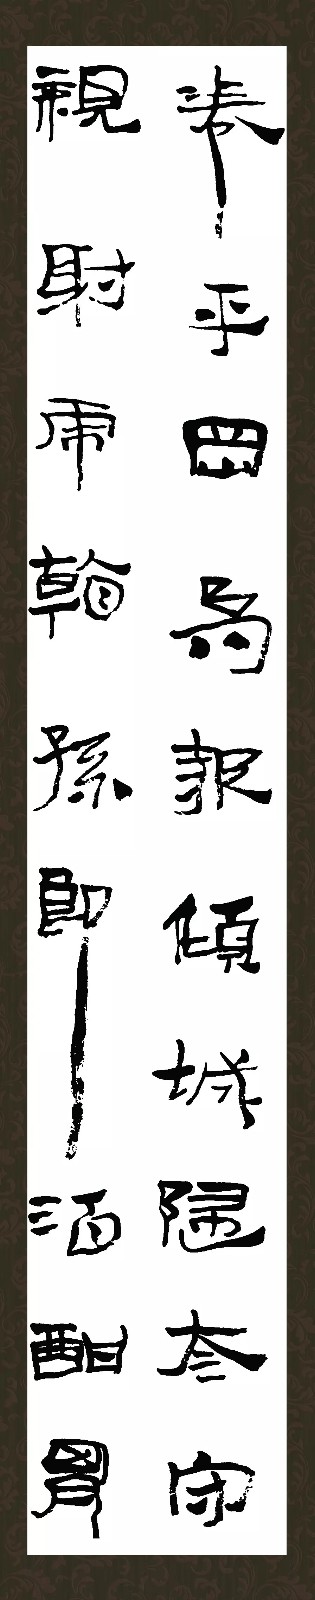 卷平岡為報傾城隨太守
親射虎看孫郎酒酣胷